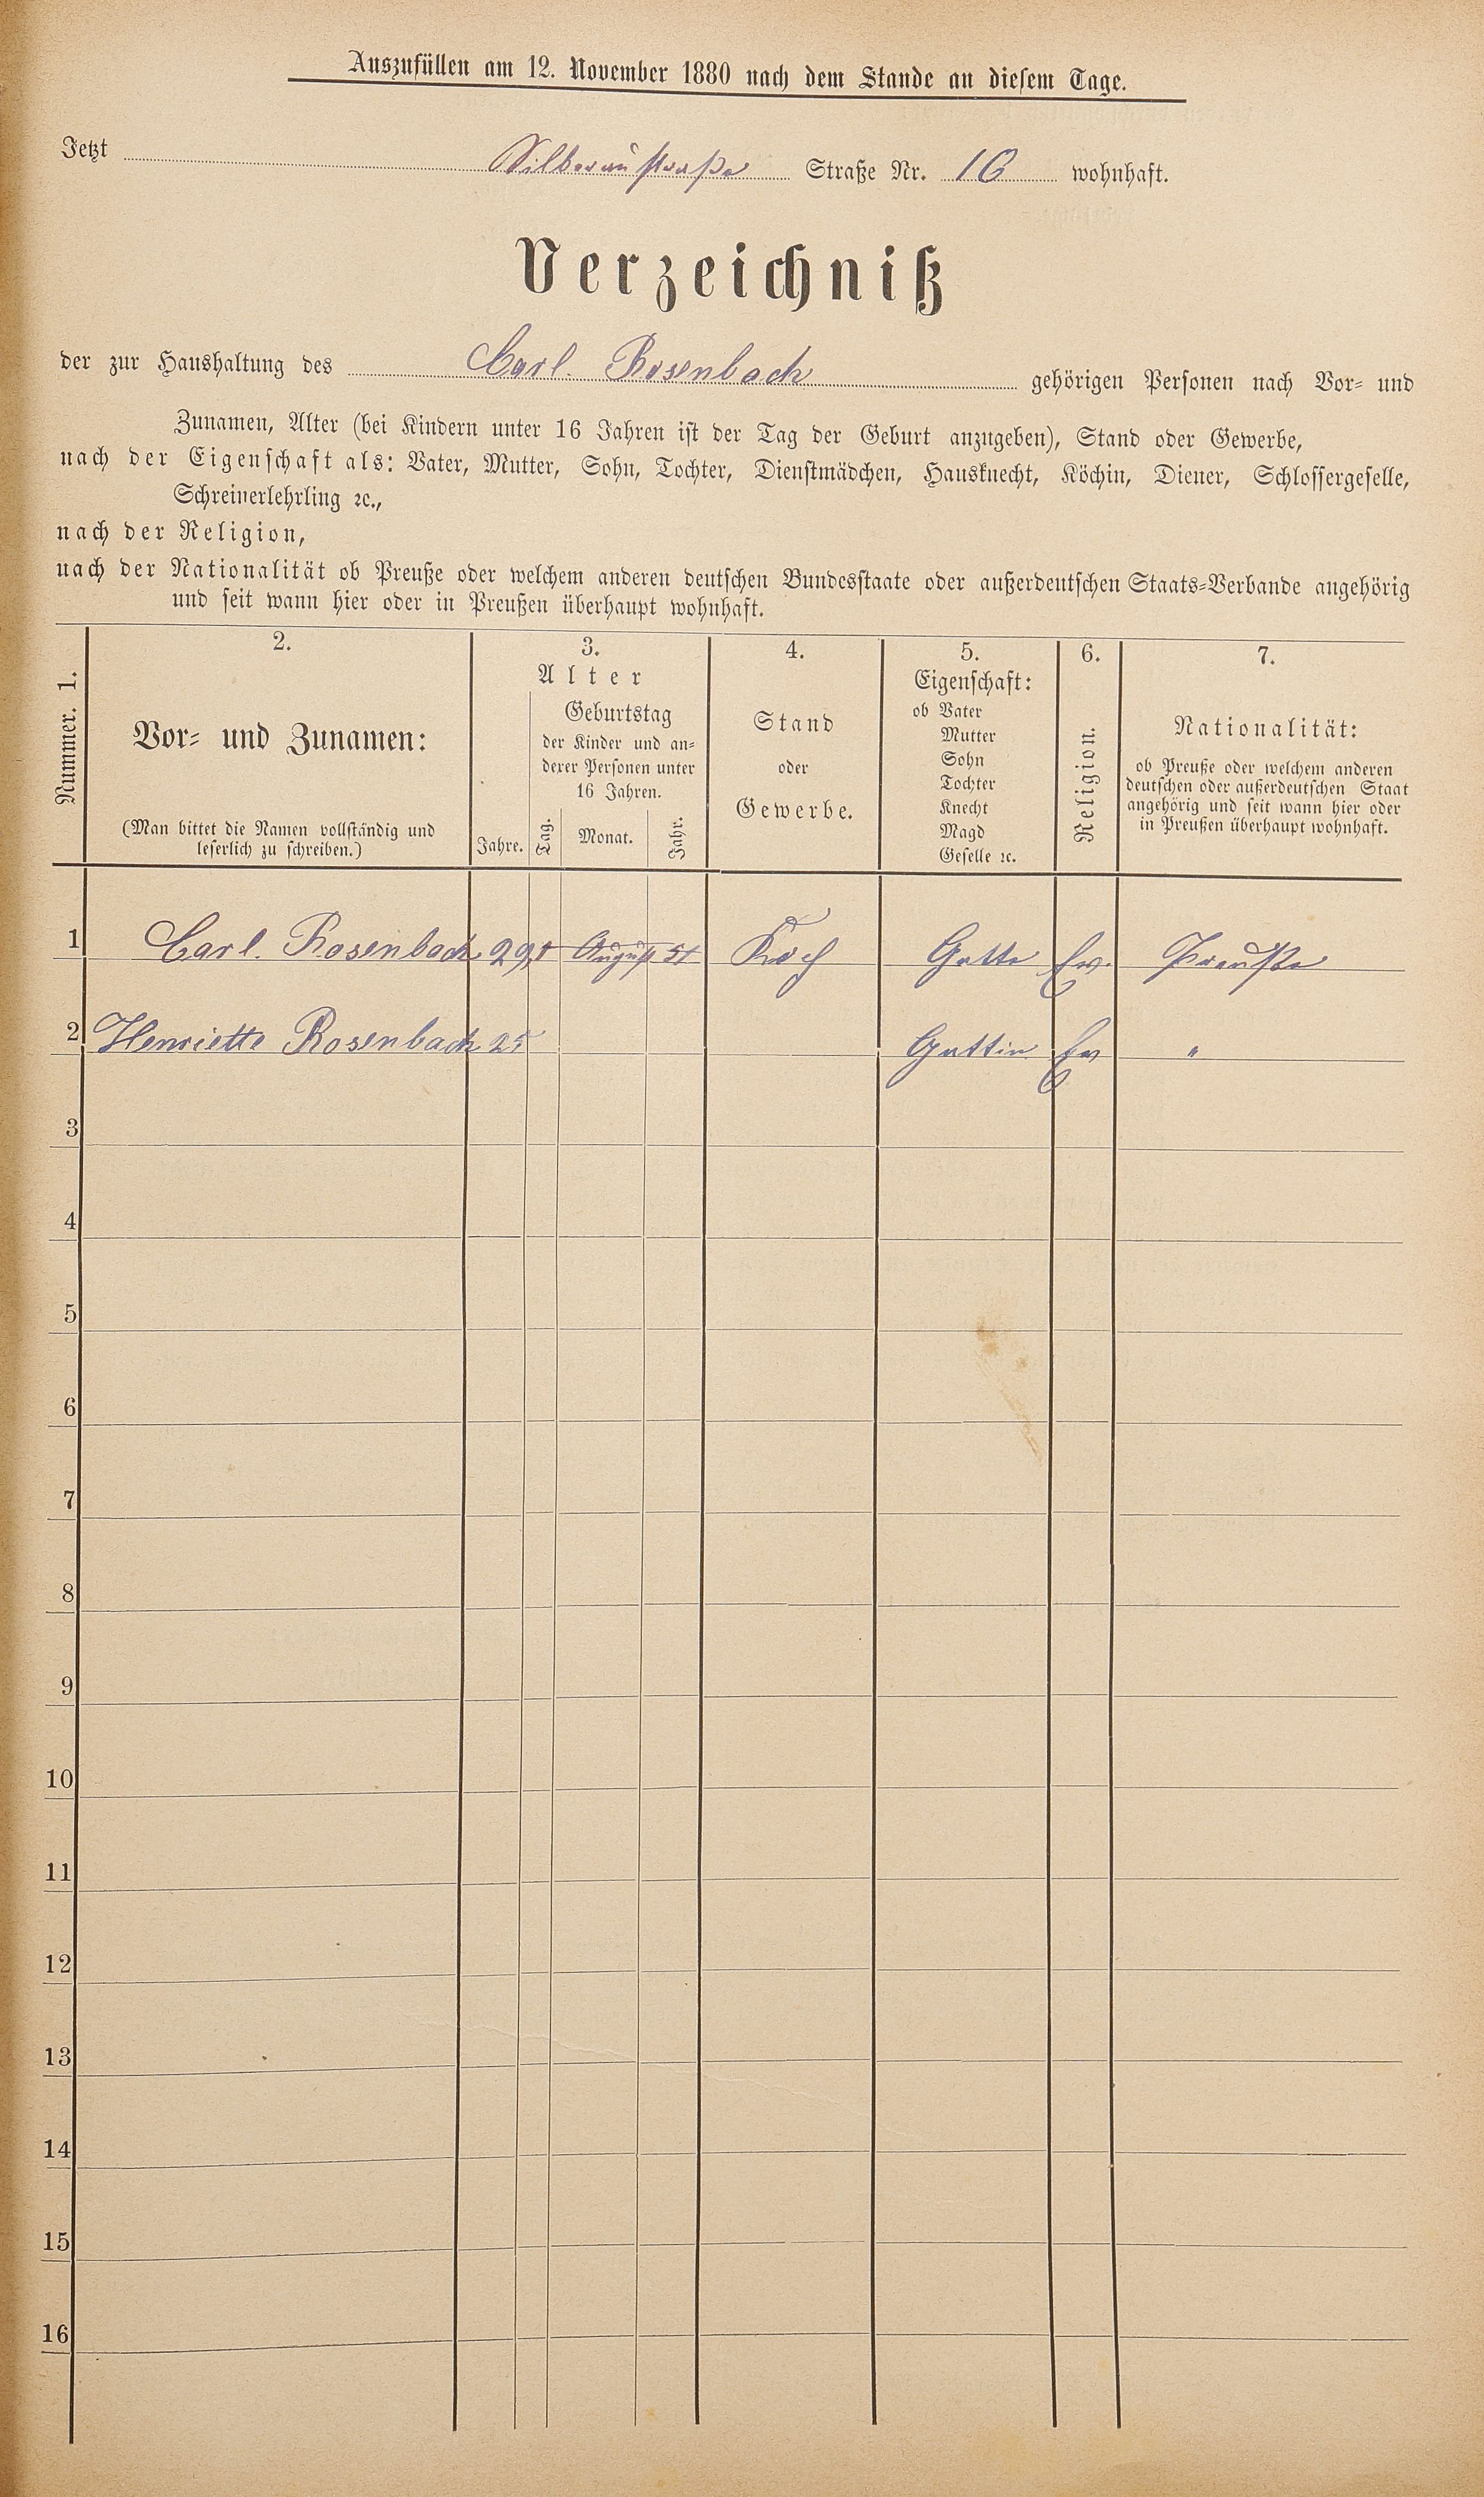 Auszufüllen am 12. November 1880 nach dem Stande an diesem Tage.
Jetzt Silberaustraße Straße Nr. 16 wohnhaft.
Verzeichniß
der zur Haushaltung des Carl Rosenbach gehörigen Personen nach Vor= und
Zunamen, Alter (bei Kindern unter 16 Jahren ist der Tag der Geburt anzugeben), Stand oder Gewerbe,
nach der Eigenschaft als: Vater, Mutter, Sohn, Tochter, Dienstmädchen, Hausknecht, Köchin, Diener, Schlossergeselle,
Schreinerlehrling ꝛc.,
nach der Religion,
nach der Nationalität ob Preuße oder welchem anderen deutschen Bundesstaate oder außerdeutschen Staats=Verbande angehörig
und seit wann hier oder in Preußen überhaupt wohnhaft.
Nummer. 1.
2.
Vor= und Zunamen:
(Man bittet die Namen vollständig und
leserlich zu schreiben.)
3.
Alter
Jahre.
Geburtstag
der Kinder und an=
derer Personen unter
16 Jahren.
Tag. Monat. Jahr.
4.
Stand
oder
Gewerbe.
5.
Eigenschaft:
ob Vater
Mutter
Sohn
Tochter
Knecht
Magd
Geselle ꝛc.
6.
Religion.
7.
Nationalität:
ob Preuße oder welchem anderen
deutschen oder außerdeutschen Staat
angehörig und seit wann hier oder
in Preußen überhaupt wohnhaft.
1 Carl. Rosenbach 29 August 51 Koch Gatte Ev. Preuße
2 Henriette Rosenbach 25 Gattin Ev "
3
4
5
6
7
8
9
10
11
12
13
14
15
16